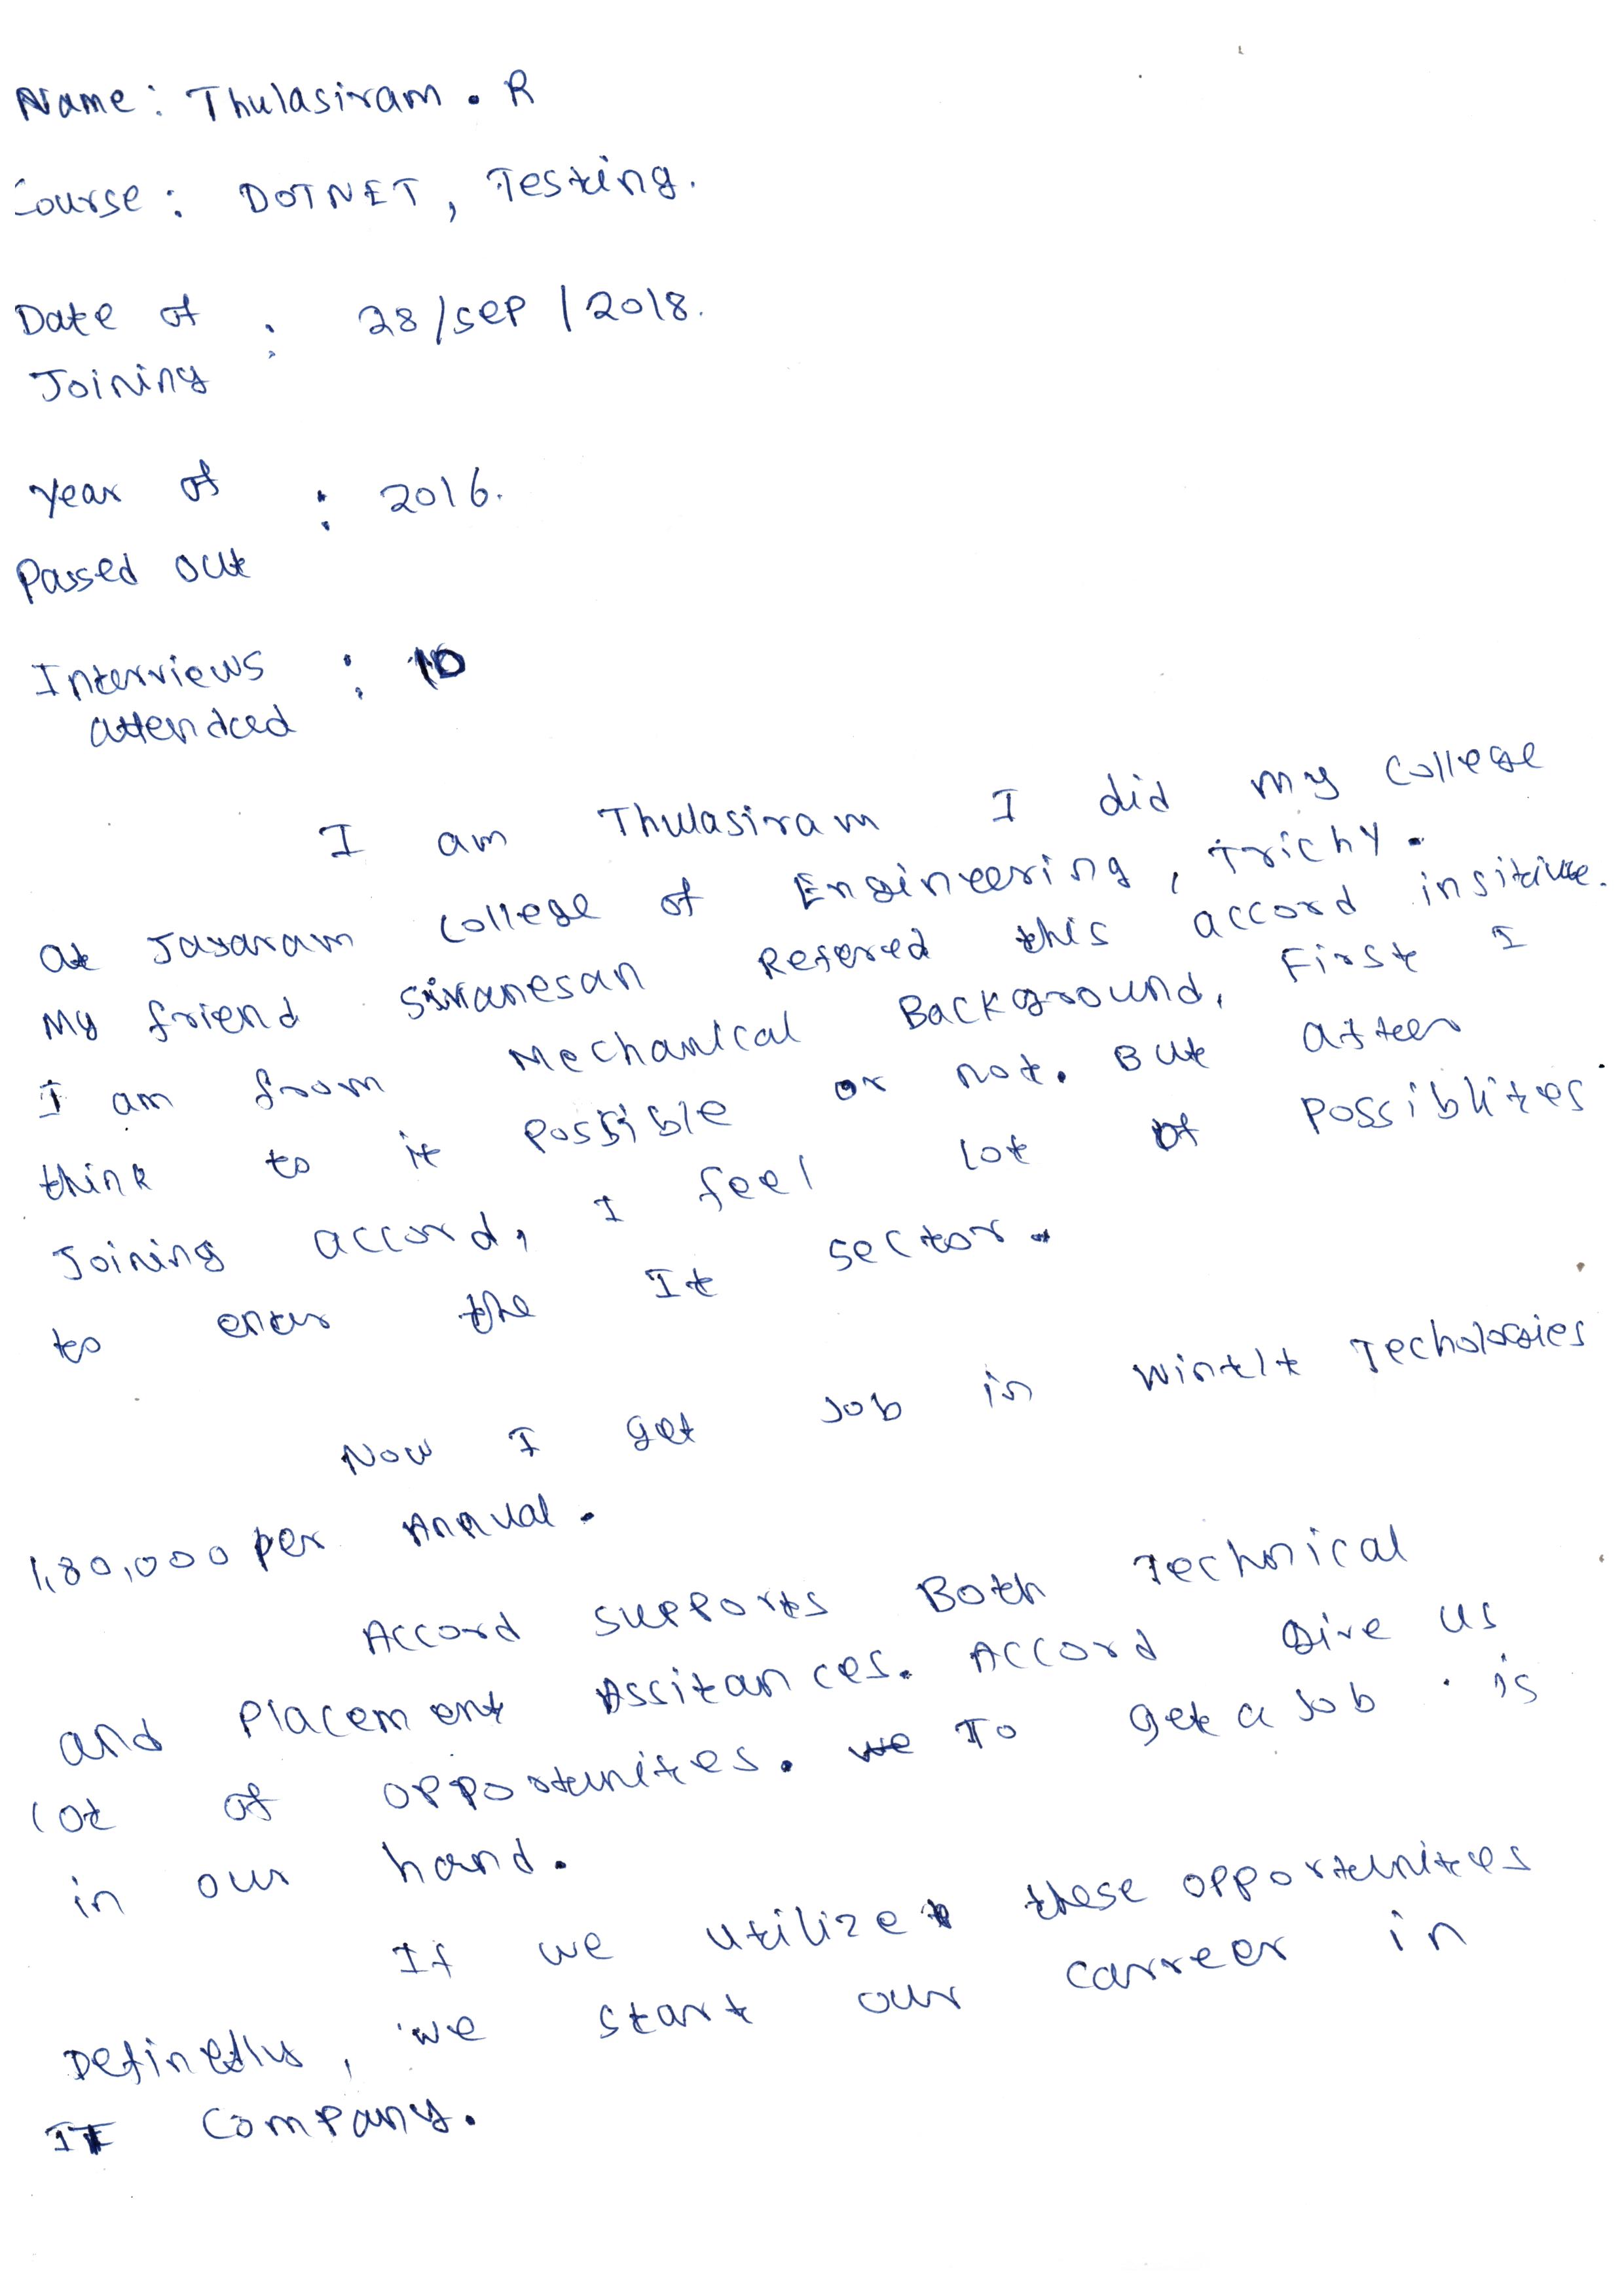 Name : Thulasiram . R
Course : DOTNET, Testing.
Date of : 28/sep/2018.
Joining
Year of : 2016.
Passed out
Interviews : 10
attended
I am Thulasiram I did my college
at Jayaram college of Engineering, Trichy.
My friend Sivanesan Refered this accord insitiute.
I am from Mechanical Background, First I
think to it possible or not. But after
Joining accord, I feel lot of possiblities
to enter the It sector.
Now I get Job in Techologies
1,80,000 per Annual.
Accord supports Both Technical
and Placement Assitances. Accord Give us
lot of opportunities. To get a Job is
in our hand.
If we utilize these opportunities
Definetly, we start our carreer in
IT Company.